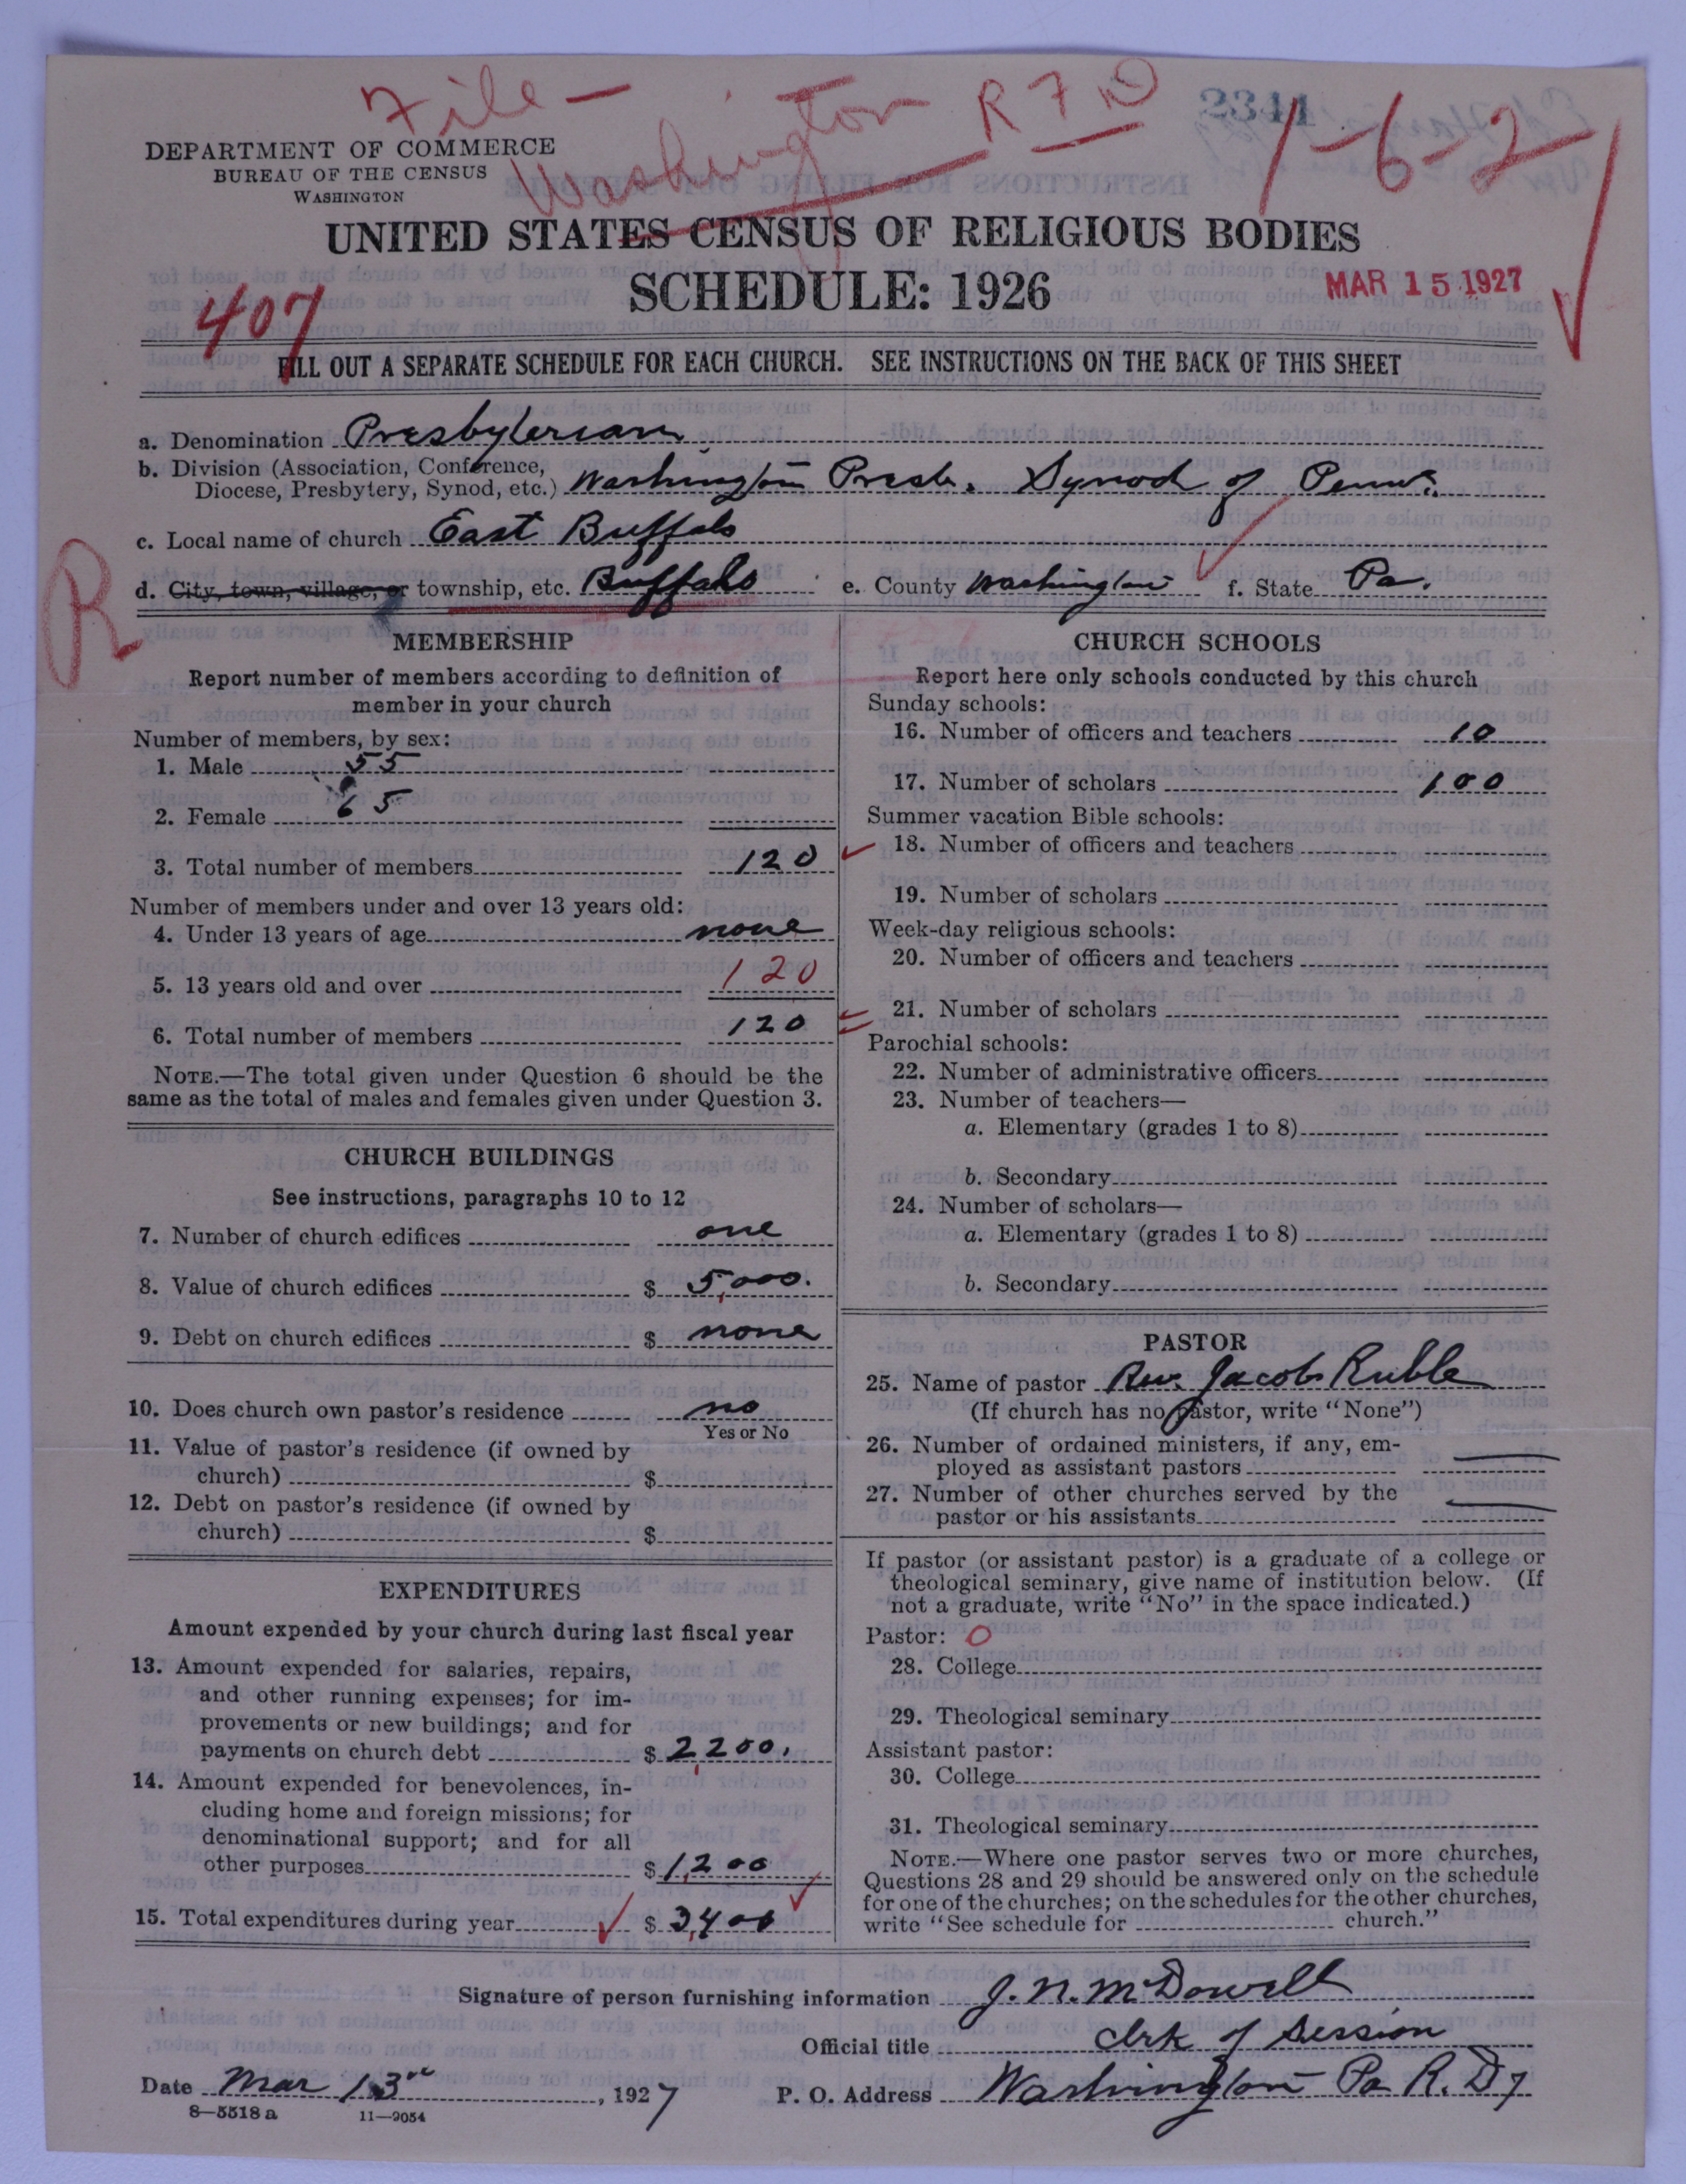 File — Washington R F D
2341
1-6-2
DEPARTMENT OF COMMERCE
BUREAU OF THE CENSUS
WASHINGTON
UNITED STATES CENSUS OF RELIGIOUS BODIES
SCHEDULE: 1926
MAR 15 1927
407
FILL OUT A SEPARATE SCHEDULE FOR EACH CHURCH. SEE INSTRUCTIONS ON THE BACK OF THIS SHEET
a. Denomination Presbyterian
b. Division (Association, Conference,
Diocese, Presbytery, Synod, etc.) Washington Presb. Synod of Penna.
c. Local name of church East Buffalo
R
d. City, town, village, or township, etc. Buffalo e. County Washington f. State Pa.
MEMBERSHIP
Report number of members according to definition of
member in your church
Number of members, by sex:
1. Male 55
2. Female 65
3. Total number of members 120
Number of members under and over 13 years old:
4. Under 13 years of age none
5. 13 years old and over 120
6. Total number of members 120
NOTE.—The total given under Question 6 should be the
same as the total of males and females given under Question 3.
CHURCH BUILDINGS
See instructions, paragraphs 10 to 12
7. Number of church edifices one
8. Value of church edifices $ 5,000.
9. Debt on church edifices $ none
10. Does church own pastor's residence no
Yes or No
11. Value of pastor's residence (if owned by
church) $
12. Debt on pastor's residence (if owned by
church) $
EXPENDITURES
Amount expended by your church during last fiscal year
13. Amount expended for salaries, repairs,
and other running expenses; for im-
provements or new buildings; and for
payments on church debt $ 2,200.
14. Amount expended for benevolences, in-
cluding home and foreign missions; for
denominational support; and for all
other purposes $ 1,200
15. Total expenditures during year $ 3,400
CHURCH SCHOOLS
Report here only schools conducted by this church
Sunday schools:
16. Number of officers and teachers 10
17. Number of scholars 100
Summer vacation Bible schools:
18. Number of officers and teachers
19. Number of scholars
Week-day religious schools:
20. Number of officers and teachers
21. Number of scholars
Parochial schools:
22. Number of administrative officers
23. Number of teachers—
a. Elementary (grades 1 to 8)
b. Secondary
24. Number of scholars—
a. Elementary (grades 1 to 8)
b. Secondary
PASTOR
25. Name of pastor Rev. Jacob Ruble
(If church has no pastor, write "None")
26. Number of ordained ministers, if any, em-
ployed as assistant pastors
27. Number of other churches served by the
pastor or his assistants
If pastor (or assistant pastor) is a graduate of a college or
theological seminary, give name of institution below. (If
not a graduate, write "No" in the space indicated.)
Pastor: O
28. College
29. Theological seminary
Assistant pastor:
30. College
31. Theological seminary
NOTE.—Where one pastor serves two or more churches,
Questions 28 and 29 should be answered only on the schedule
for one of the churches; on the schedules for the other churches,
write "See schedule for church."
Signature of person furnishing information J. N. McDowell
Official title Clrk of Session
Date Mar 13rd, 1927 P. O. Address Washington Pa R. D 7
8—5518 a 11—9054